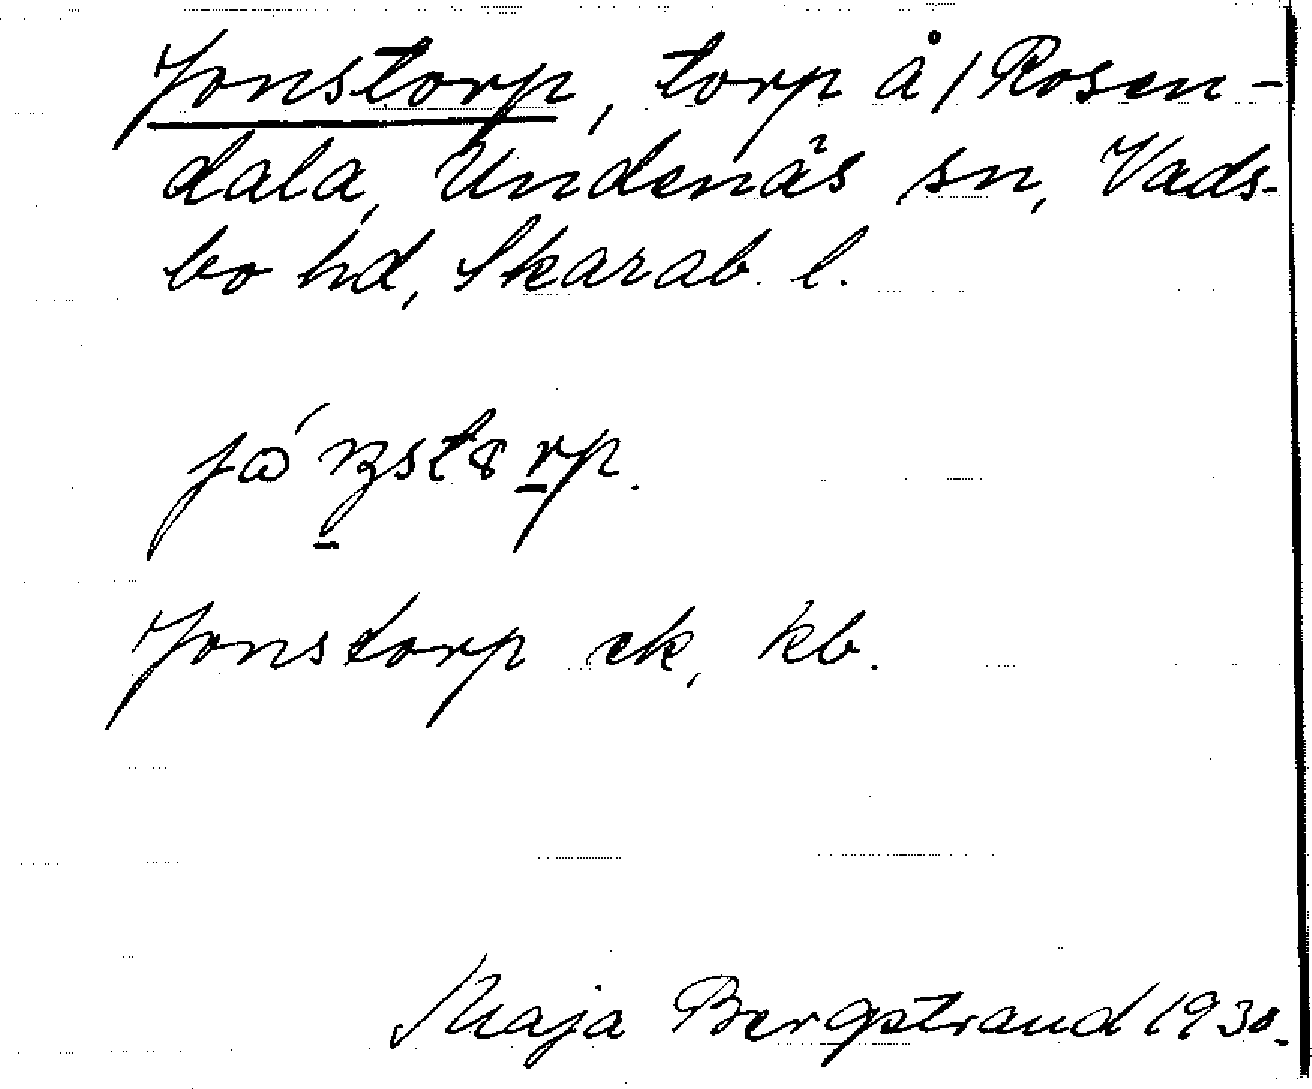 Jonstorp, torp å/Rosen-
dala, Undenäs sn, Vads-
bo hd, Skarab. l.
Jonstorp ek, kb.
Maja Bergstrand 1930.